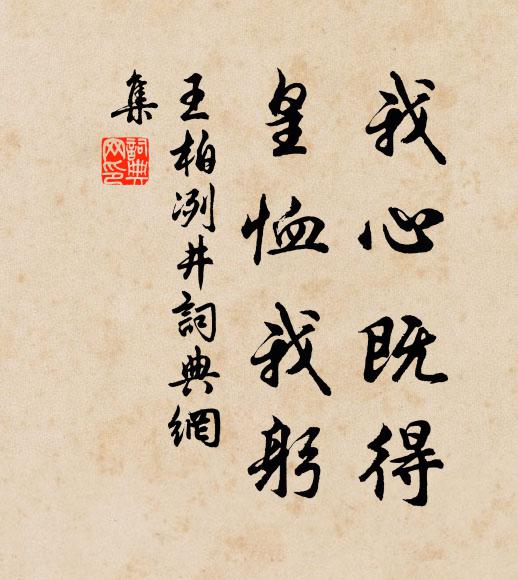 我心既得
皇恤我躬
王柏冽井詞典網
集
詞典
网印